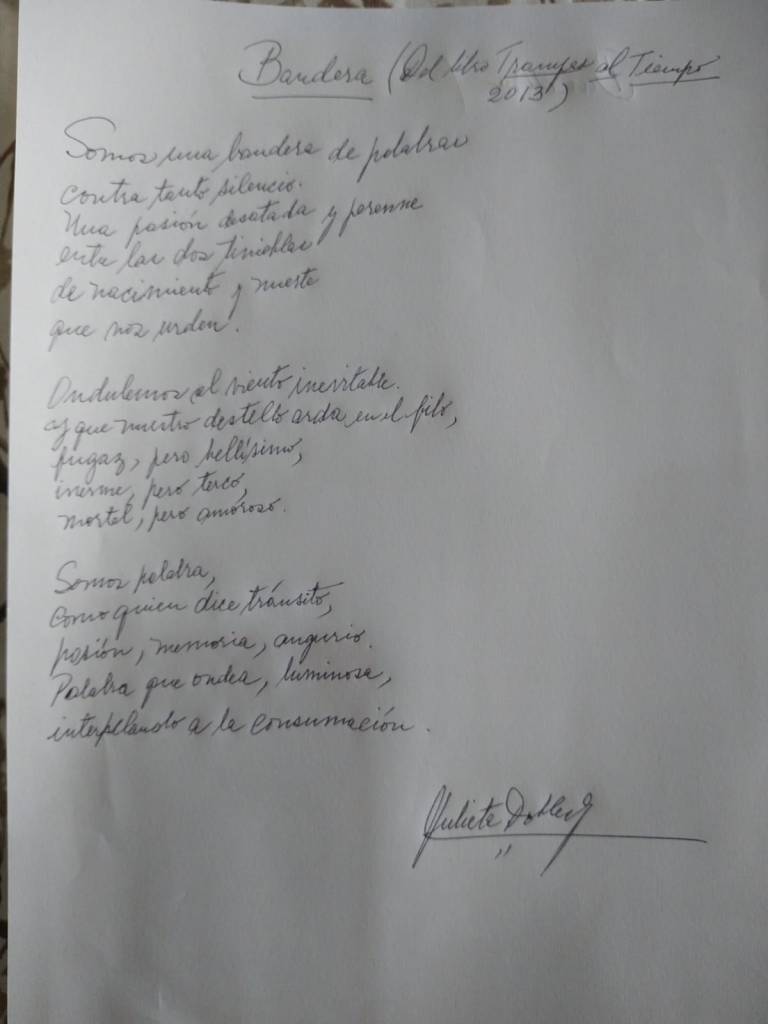 Bandera (Del libro Trampas al Tiempo
2013)
Somos una bandera de palabras
contra tanto silencio.
Una pasión desatada y perenne
entre las dos tinieblas
de nacimiento y muerte
que nos urden.
Ondulemos al viento inevitable.
y que nuestro destello arda en el filo,
fugaz, pero bellísimo,
inerme, pero terco,
mortal, pero amoroso.
Somos palabra,
como quien dice tránsito,
pasión, memoria, augurio.
Palabra que ondea, luminosa,
interpelando a la consumación.
Julieta Dobles